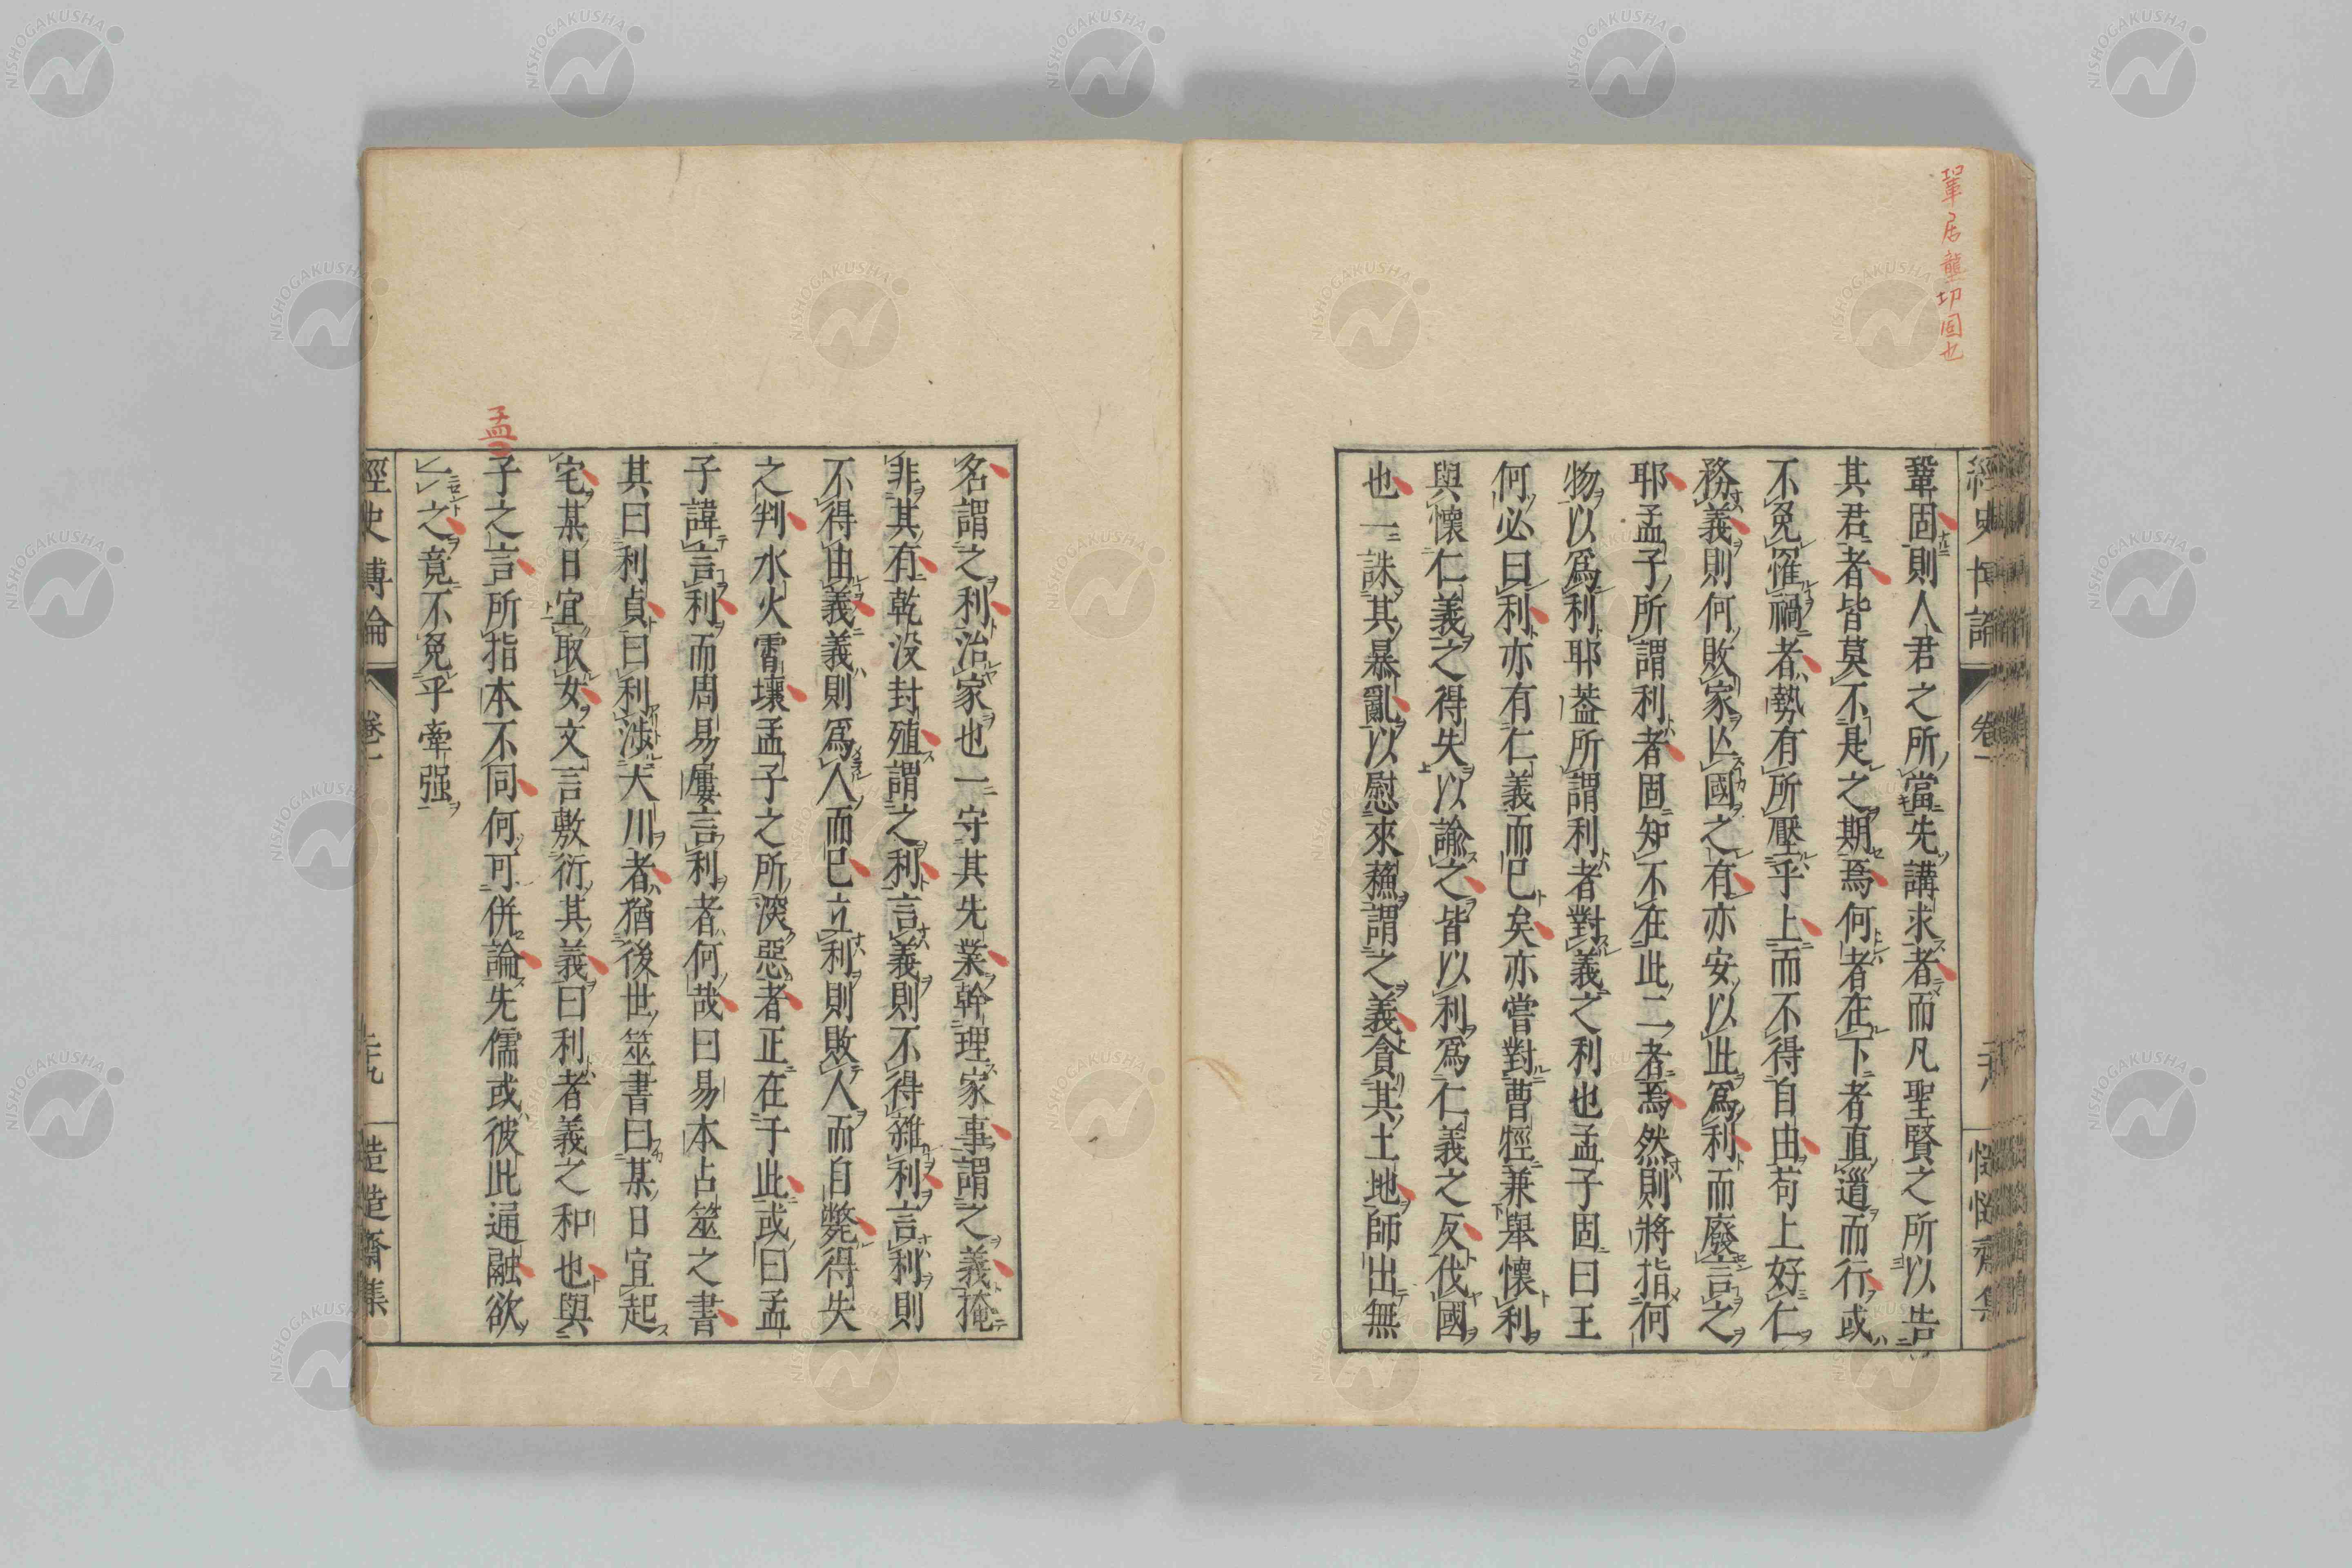 鞏居龍切固也
鞏固則人君之所當先講求者而凡聖賢之所以告
其君者皆莫不是之期焉何者在下者直道而行或
不免罹禍者勢有所壓乎上而不得自由苟上好仁
務義則何敗家亾國之有亦安以此爲利而廢言之
耶孟子所謂利者固知不在此二者焉然則將指何
物以爲利耶葢所謂利者對義之利也孟子固曰王
何必曰利亦有仁義而已矣亦嘗對曹牼兼舉懷利
與懷仁義之得失以諭之皆以利爲仁義之反伐國
也一誅其暴亂以慰來蘓謂之義貪其土地師出無
經史博論
卷一
名謂之利治家也一守其先業幹理家事謂之義掩
非其有乾没封殖謂之利言義則不得雜利言利則
不得由義義則爲人而已立利則敗人而自斃得失
之判水火霄壤孟子之所深惡者正在于此或曰孟
子諱言利而周易屢言利者何哉曰易本占筮之書
其曰利貞曰利涉大川者猶後世筮書曰某日宜起
宅某日宜取女文言敷衍其義曰利者義之和也與
孟
子之言所指本不同何可併論先儒或彼此通融欲
一之竟不免乎牽强
經史博論
卷一
造造齋集